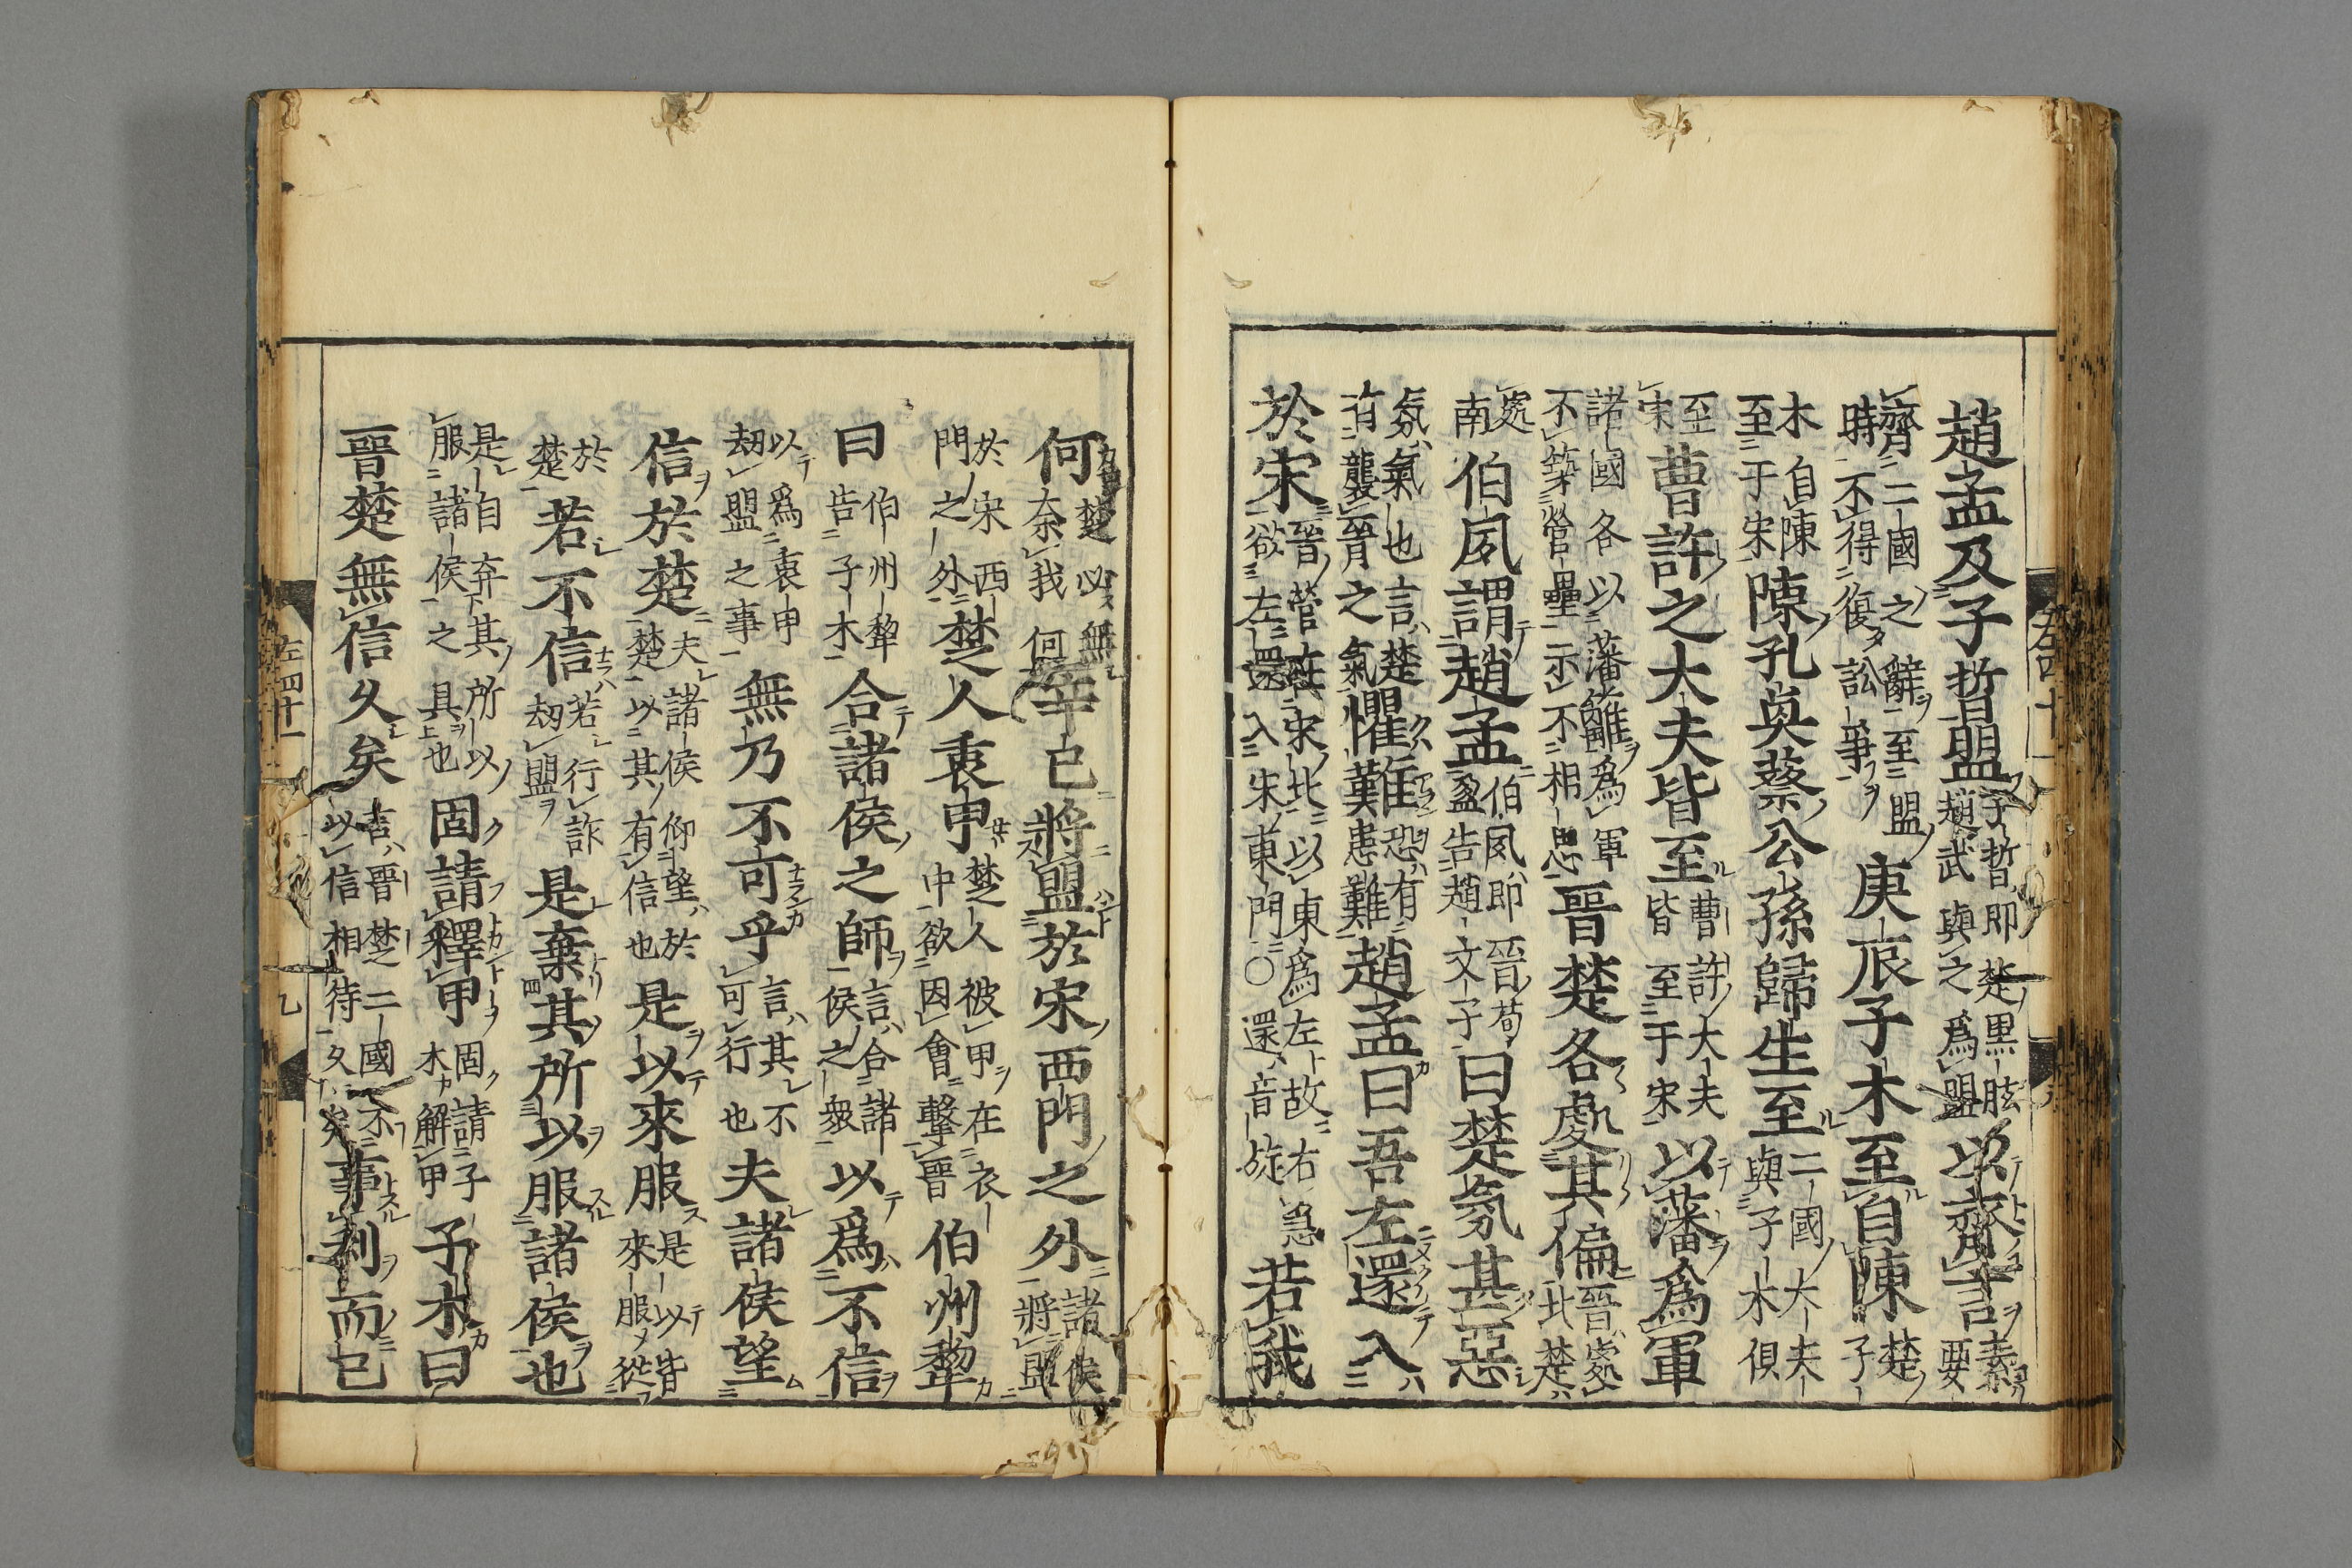 趙孟及子晳盟子晳即楚黒肱趙武與之爲盟以齊言素要
齊二國之辭至盟時不得復訟爭庚辰子木至自陳楚子
木自陳至于宋陳孔奐蔡公孫歸生至二國大夫與子木俱
至宋曹許之大夫皆至曹許大夫皆至于宋以藩爲軍
諸國各以藩籬爲軍不築營壘示不相忌晉楚各處其偏晉處北楚
處南伯夙謂趙孟伯夙即晉荀盈告趙文子曰楚氛甚惡
氛氣也言楚有襲晉之氣懼難恐有患難趙孟曰吾左還入
於宋晉營在宋北以東爲左故欲左還入宋東門○還音旋右急若我
何楚必無奈我何辛巳將盟於宋西門之外諸侯將盟
於宋西門之外楚人衷甲楚人被甲在衣中欲因會擊晉伯州犂
曰伯州犂告子木合諸侯之師言合諸侯之衆以爲不信
以爲衷甲劫盟之事無乃不可乎言其不可行也夫諸侯望
信於楚夫諸侯仰望於楚以其有信也是以來服是以皆來服從
於楚若不信若行詐劫盟是棄其所以服諸侯也
是自弃其所以服諸侯之具也固請釋甲固請子木解甲子木曰
晉楚無信久矣言晉楚二國不以信相待久矣事利而已
左四十一